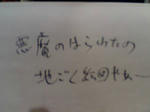 悪魔のはらわたの
地ごく絵図やねー